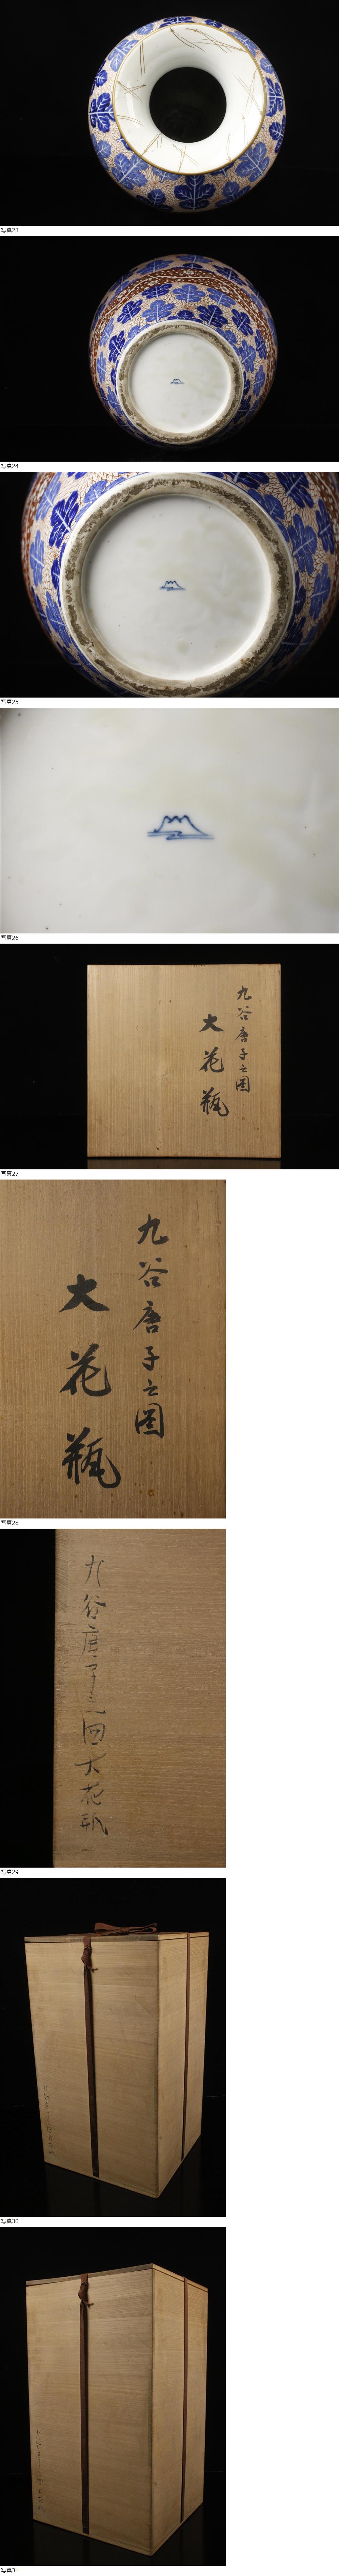 写真23
写真24
写真25
写真26
九谷唐子之図
大花瓶
写真27
九谷唐子之図
大花瓶
写真28
九谷唐子之図大花瓶
写真29
写真30
写真31